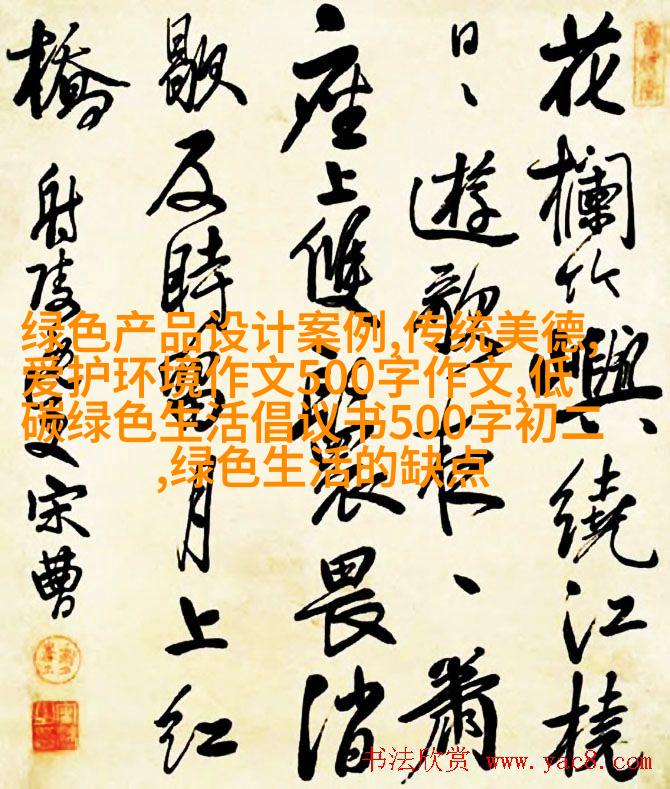 花欄竹嶼繞江橈
日、遊歌夜、簫
座上雙畏消
歇及時明月上紅
橋 射陵逸史宋曹
绿色产品设计案例,传统美德,
爱护环境作文500字作文,低
碳绿色生活倡议书500字初二
,绿色生活的缺点
书法欣赏 www.yac8.com